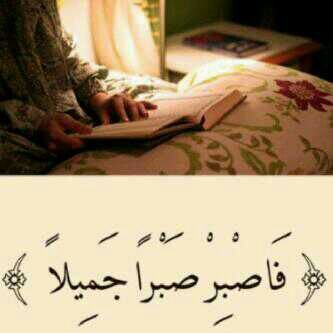 ﴿ فَاصْبِرْ صَبْرًا جَمِيلًا ﴾